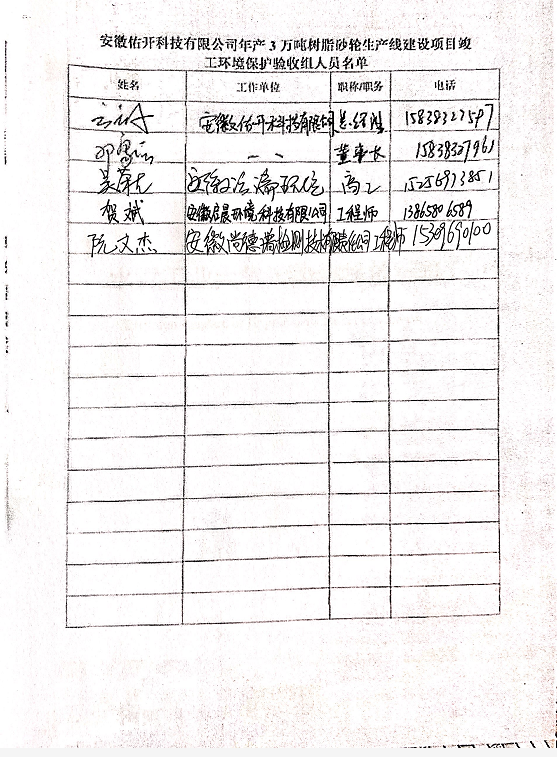 安徽佑开科技有限公司年产 3 万吨树脂砂轮生产线建设项目竣
工环境保护验收组人员名单
姓名 工作单位 职称/职务 电话
安徽佑开科技有限公司 总经理 15838327597
董事长 15838327961
高工 15256913851
贺斌 安徽启晨环境科技有限公司 工程师 13865806589
阮文杰 安徽尚德瑞检测技术有限责任公司 工程师 15309690100